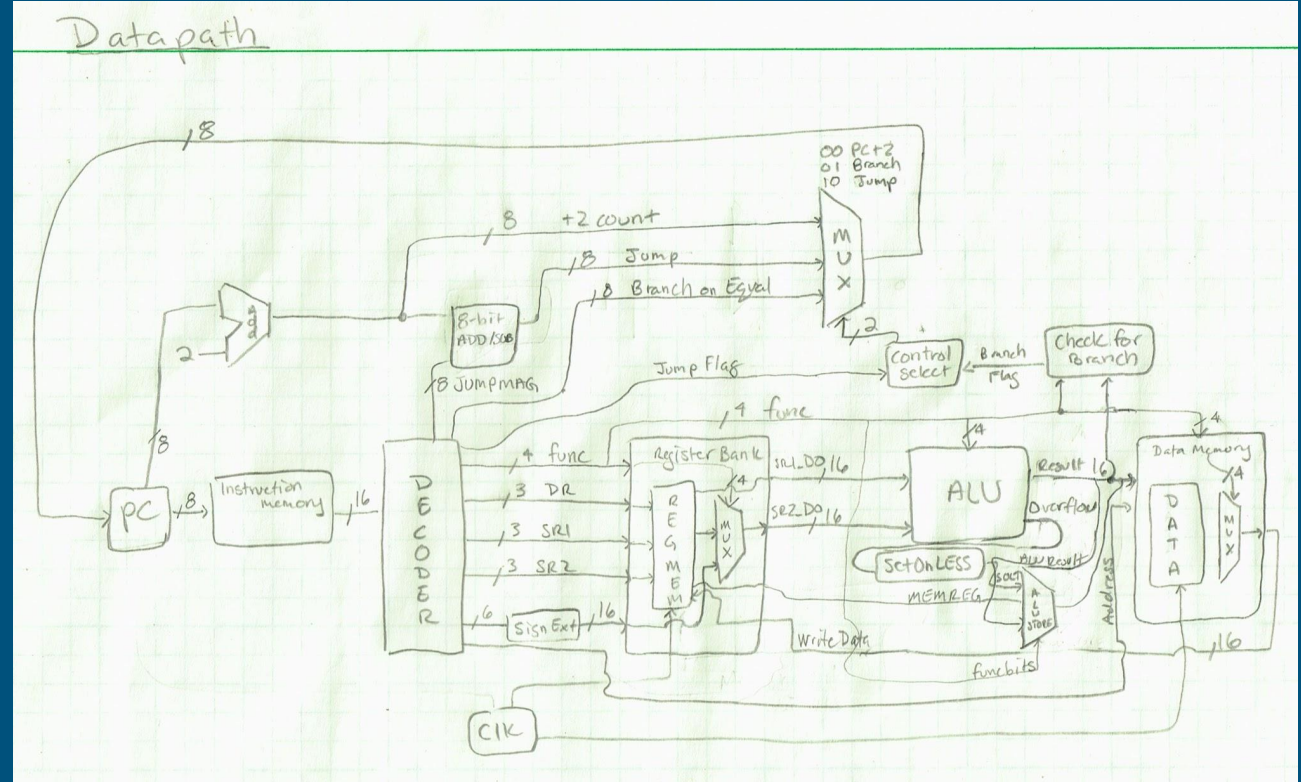 Datapath
8
00 PC+2
01 Branch
10 Jump
8 +2 count
8 Jump
8 Branch on Equal
MUX
2
ADD
2
8-bit
ADD/SUB
8 JUMPMAG
Jump Flag
Control
Select
Branch
Flag
Check for
Branch
8
PC
8
Instruction
memory
16
DECODER
4 func
4 func
3 DR
3 SR1
3 SR2
6
Sign Ext
16
Register Bank
REGMEM
4
MUX
SR1_DO 16
SR2_DO 16
4
ALU
Result 16
Overflow
SetOnLESS
ALU Result
SOLT
MEMREG
ALU
STORE
Write Data
funcbits
Address
4
Data Memory
4
DATA
MUX
16
Clk